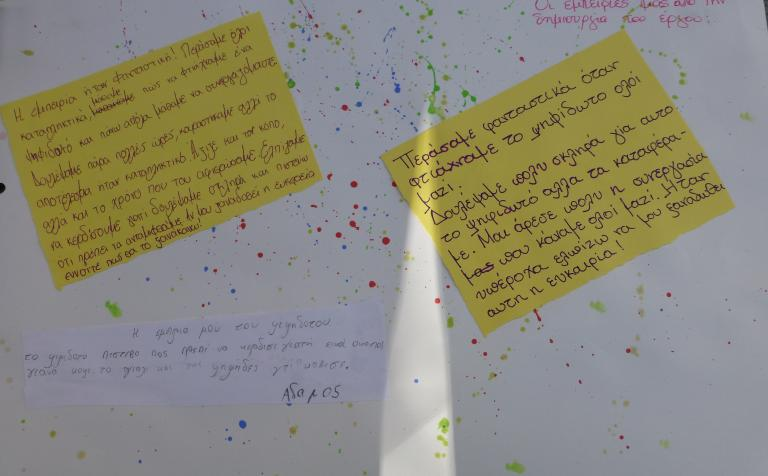 Οι εμπειρίες μας από την
δημιουργία του έργου:
Η εμπειρία ήταν φανταστική! Περάσαμε όλοι
καταπληκτικά μάθαμε πώς να φτιάχνουμε ένα
ψηφιδωτό και πάνω απόλα μάθαμε να συνεργαζόμαστε.
Δουλέψαμε πάρα πολλές ώρες, κουραστήκαμε αλλά το
αποτέλεσμα ήταν καταπληκτικό. Άξιζε και τον κόπο,
αλλά και το χρόνο που του αφιερώσαμε. Ελπίζουμε
να κερδίσουμε γιατί δουλέψαμε σκληρά και πιστεύω
ότι πρέπει να ανταμειφθούμε. Αν μου ξαναδοθεί η ευκαιρία
εννοείτε πως θα το ξανακάνω!
Περάσαμε φανταστικά όταν
φτιάχναμε το ψηφιδωτο ολοι
μαζί.
Δουλέψαμε πολυ σκληρά για αυτο
το ψηφιδωτο αλλα τα καταφέρα-
με. Μου άρεσε πολυ η συνεργασία
μας που κάναμε ολοι μαζί. Ήταν
υπέροχα ελπίζω να μου ξαναδωθεί
αυτη η ευκαιρία!
Η εμπιρία μου του ψηφηδοτου
το ψιφιδοτο πιστευο πος πρεπι να κερδισι γιατη εινε
και τις ψηφηδες
Αδαμος